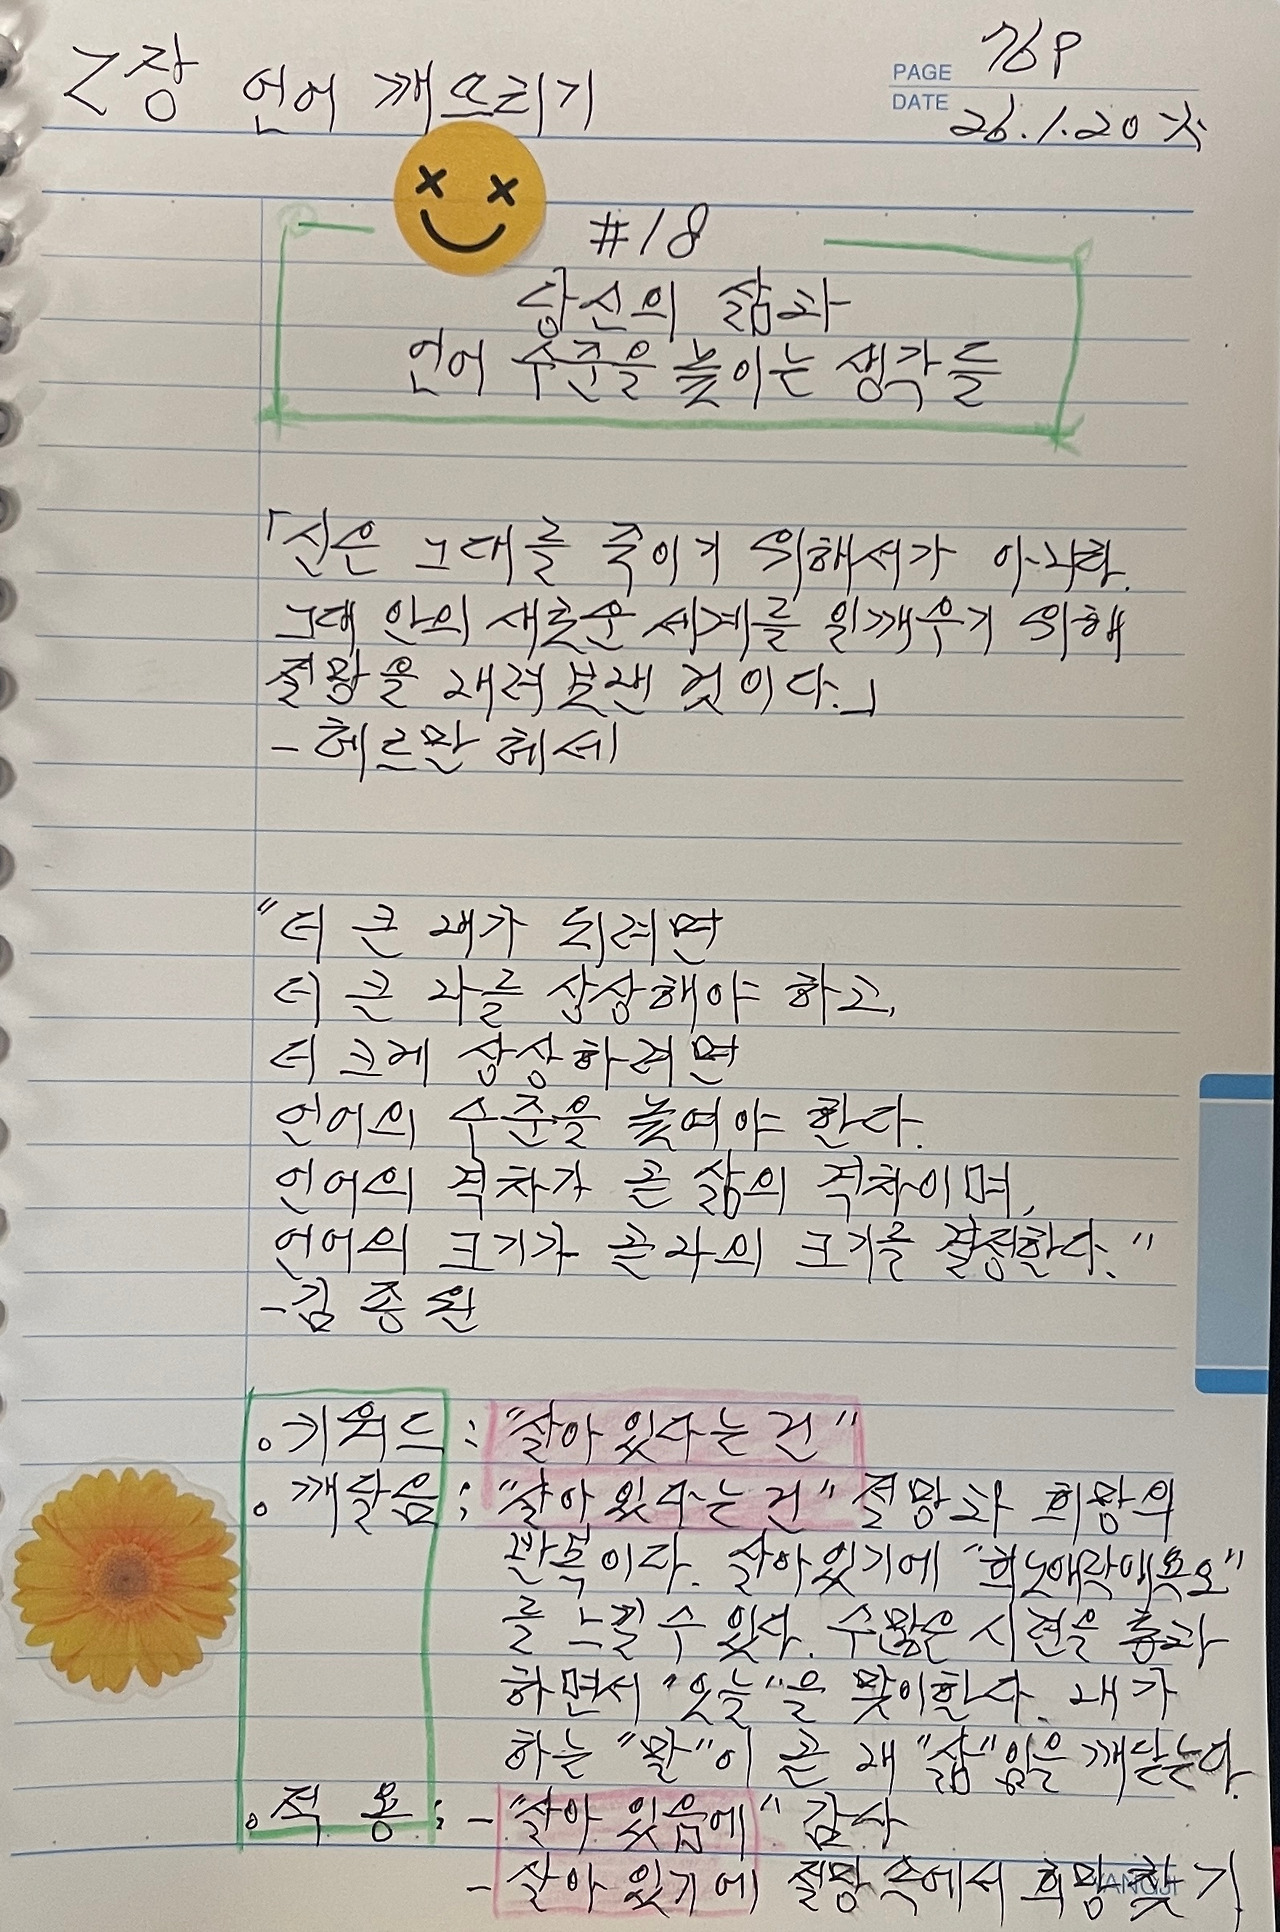 2장 언어 깨뜨리기
PAGE 76P
DATE 26.1.20 火
#18
당신의 삶과
언어 수준을 높이는 생각들
「신은 그대를 죽이기 위해서가 아니라.
그대 안의 새로운 세계를 일깨우기 위해
절망을 내려 보낸 것이다.」
- 헤르만 헤세
"더 큰 내가 되려면
더 큰 나를 상상해야 하고,
더 크게 상상하려면
언어의 수준을 높여야 한다.
언어의 격차가 곧 삶의 격차이며,
언어의 크기가 곧 나의 크기를 결정한다."
- 김종원
• 키워드 : "살아 있다는 건"
• 깨달음 : "살아 있다는 건" 절망과 희망의
반복이다. 살아있기에 "희노애락애욕오"
를 느낄 수 있다. 수많은 시련을 통과
하면서 "오늘"을 맞이한다. 내가
하는 "말"이 곧 내 "삶"임을 깨닫는다.
• 적용 : - "살아 있음에" 감사
- 살아 있기에 절망 속에서 희망 찾기